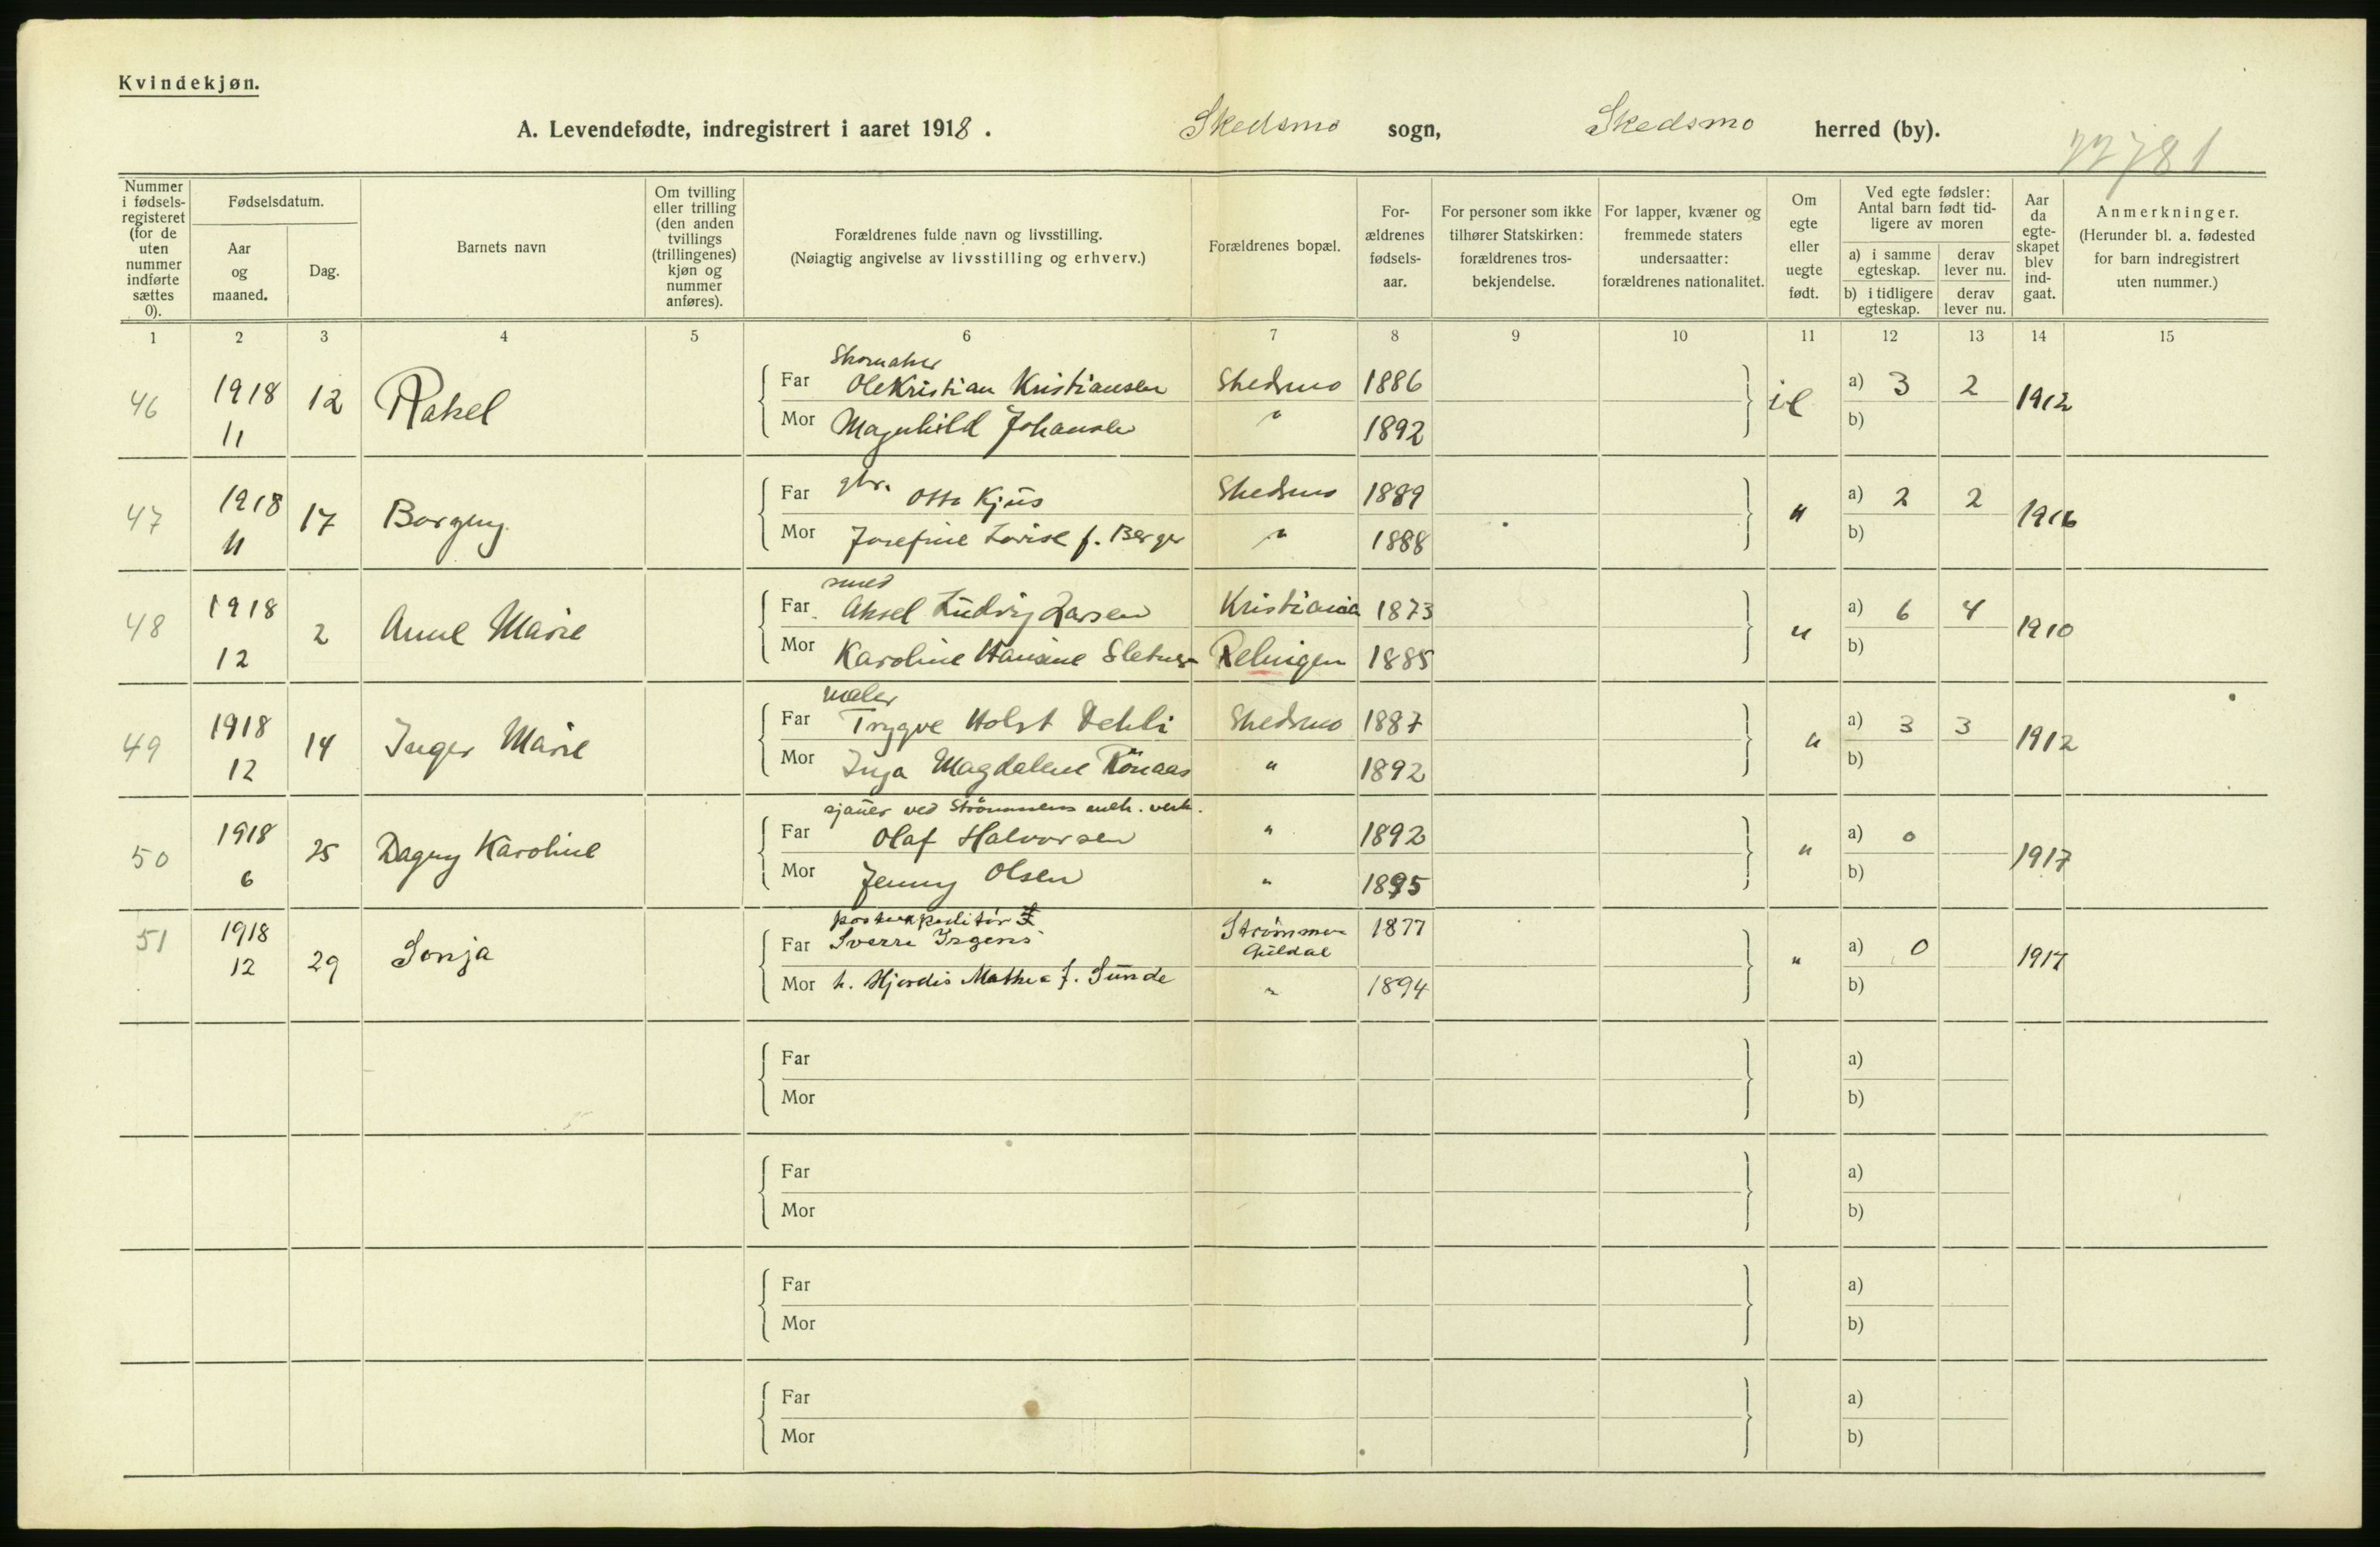 Kvindekjøn.
A. Levendefødte, indregistrert i aaret 1918. Skedsmo sogn, Skedsmo herred (by).
22781
Nummer i fødselsregisteret (for de uten nummer indførte sættes 0).
Fødselsdatum.
Aar og maaned.
Dag.
Barnets navn
Om tvilling eller trilling (den anden tvillings (trillingenes) kjøn og nummer anføres).
Forældrenes fulde navn og livsstilling.
(Nøiagtig angivelse av livsstilling og erhverv.)
Forældrenes bopæl.
Forældrenes fødselsaar.
For personer som ikke tilhører Statskirken: forældrenes trosbekjendelse.
For lapper, kvæner og fremmede staters undersaatter: forældrenes nationalitet.
Om egte eller uegte født.
Ved egte fødsler: Antal barn født tidligere av moren
a) i samme egteskap. derav lever nu.
b) i tidligere egteskap. derav lever nu.
Aar da egteskapet blev indgaat.
Anmerkninger.
(Herunder bl. a. fødested for barn indregistrert uten nummer.)
1 2 3 4 5 6 7 8 9 10 11 12 13 14 15
Skomaker
46 1918 11 12 Rakel Far Ole Kristian Kristiansen Skedsmo 1886 a) 3 2 1912
Mor Magnhild Johansen " 1892 b)
gbr.
47 1918 11 17 Borgny Far Otto Kjus Skedsmo 1889 " a) 2 2 1916
Mor Josefine Lovise f. Berger " 1888 b)
smed
48 1918 12 2 Anne Marie Far Aksel Ludvig Larsen Kristiania 1873 " a) 6 4 1910
Mor Karoline Hansine Sletner Relingen 1885 b)
maler
49 1918 12 14 Inger Marie Far Trygve Holst Dehli Skedsmo 1887 " a) 3 3 1912
Mor Inga Magdalene Rönaas " 1892 b)
sjauer ved Strömmens mek. verk.
50 1918 6 25 Dagny Karoline Far Olaf Halvorsen " 1892 " a) 0 1917
Mor Jenny Olsen " 1895 b)
postexpeditör
51 1918 12 29 Sonja Far Sverre Irgens Strömmen Guldal 1877 " a) 0 1917
Mor h. Hjördis Mathea f. Sunde " 1894 b)
Far a)
Mor b)
Far a)
Mor b)
Far a)
Mor b)
Far a)
Mor b)